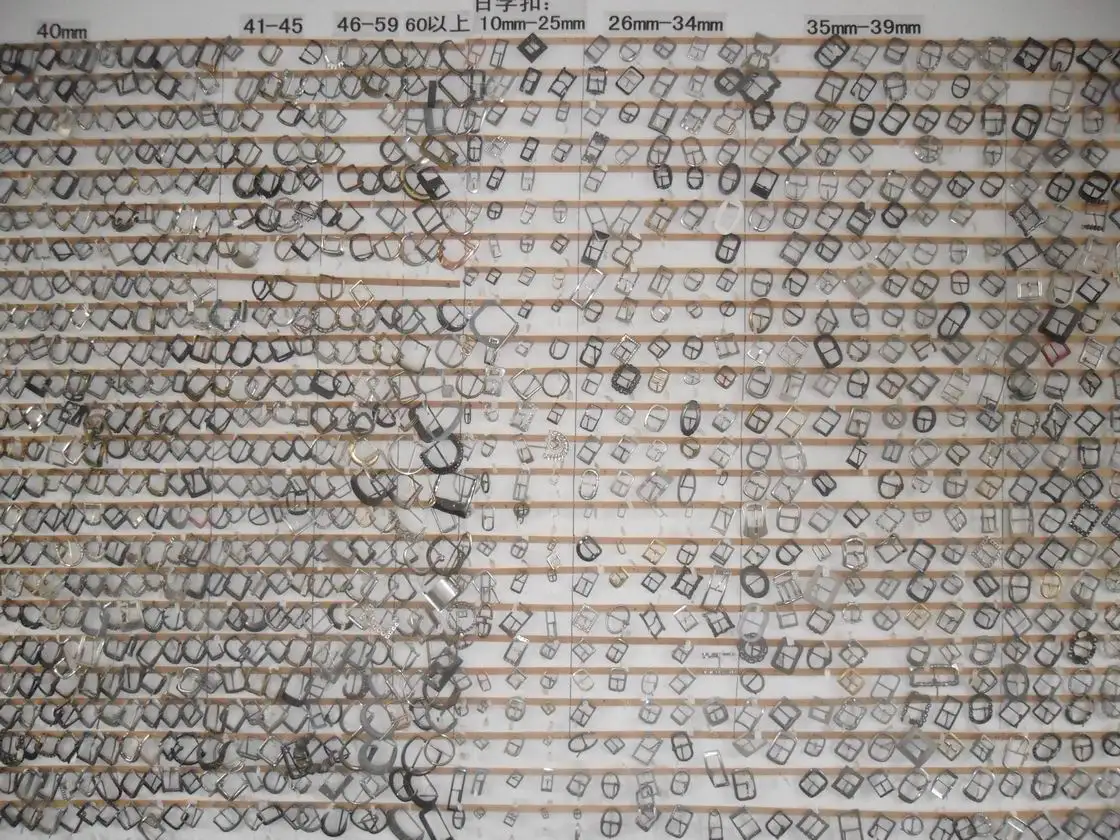 日字扣:
40mm
41-45
46-59
60以上
10mm-25mm
26mm-34mm
35mm-39mm